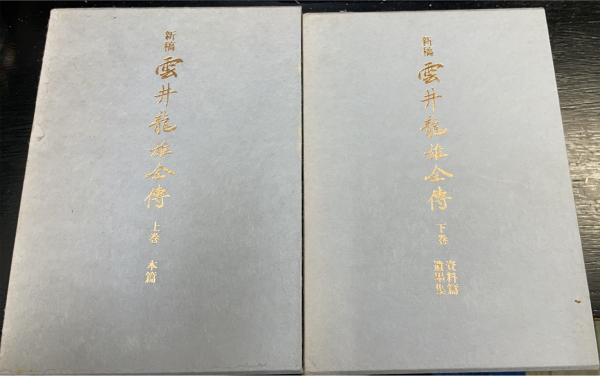 新稿
雲井龍雄全傳
上巻 本篇
新稿
雲井龍雄全傳
下巻
資料篇
遺墨集